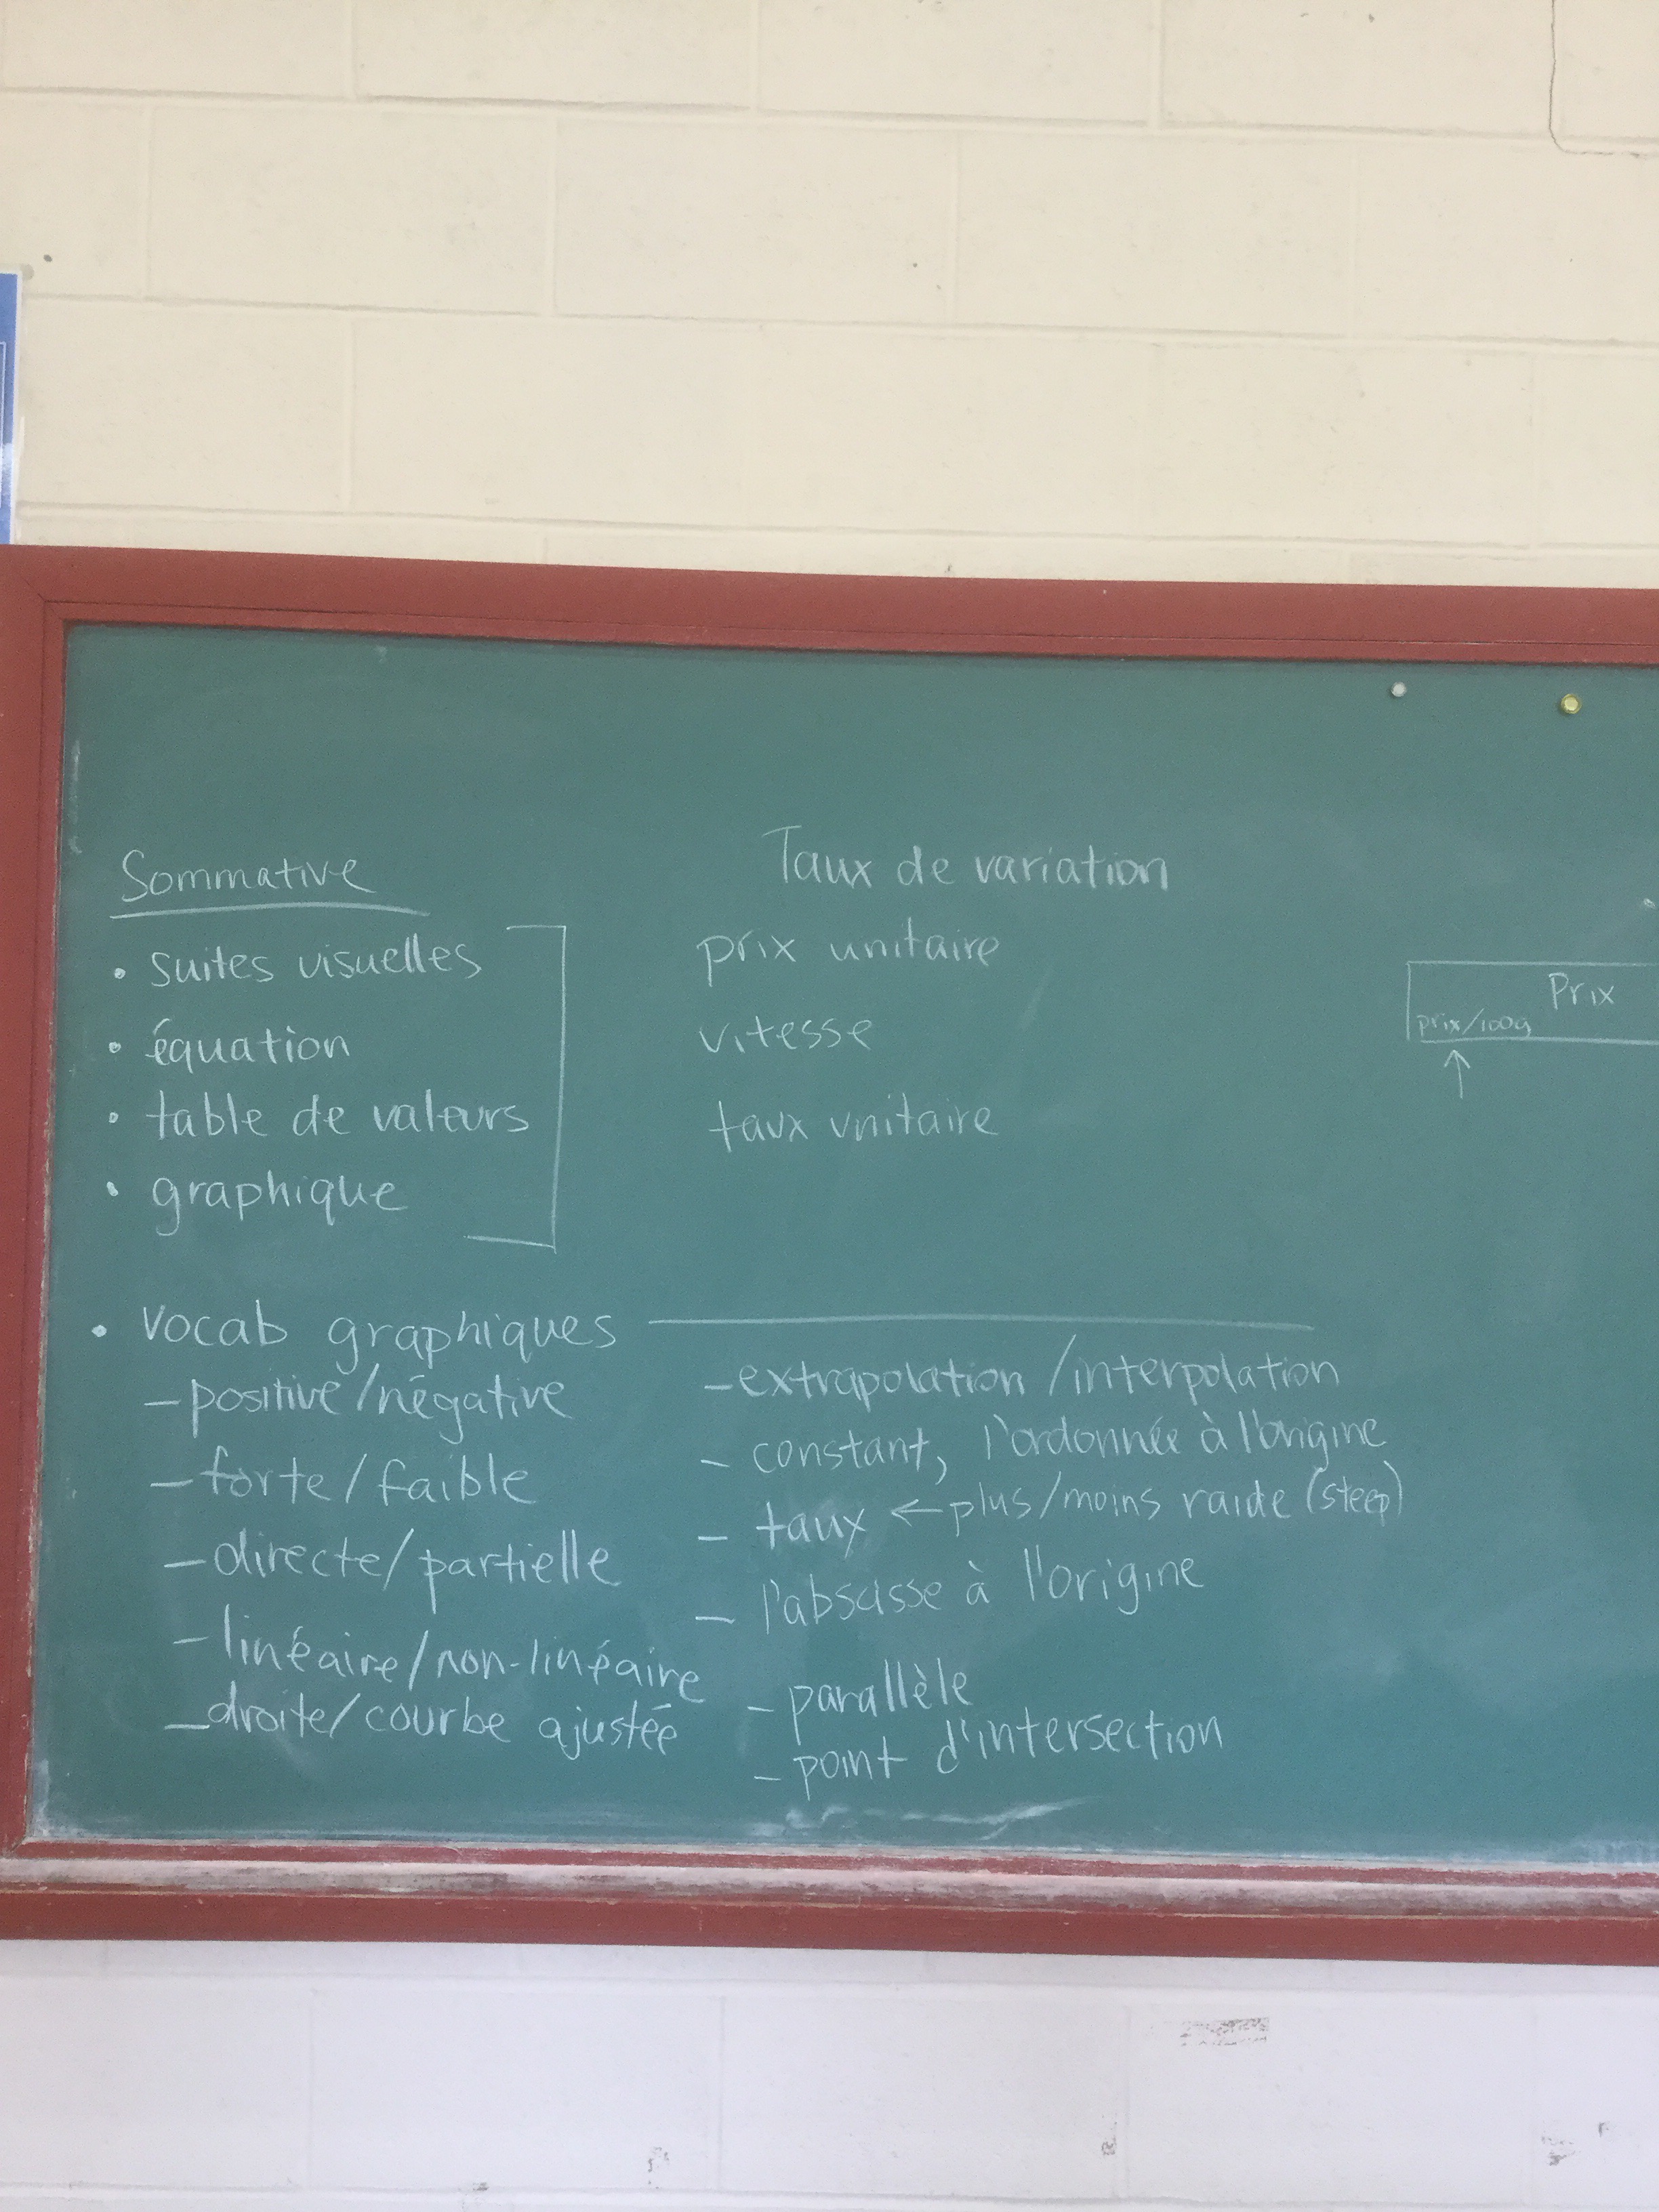 Sommative
• suites visuelles
• équation
• table de valeurs
• graphique
Taux de variation
prix unitaire
vitesse
taux unitaire
Prix
prix/100g
↑
• vocab graphiques
– positive/négative
– forte/faible
– directe/partielle
– linéaire/non-linéaire
– droite/courbe ajustée
– extrapolation/interpolation
– constant, l'ordonnée à l'origine
– taux ← plus/moins raide (steep)
– l'abscisse à l'origine
– parallèle
– point d'intersection